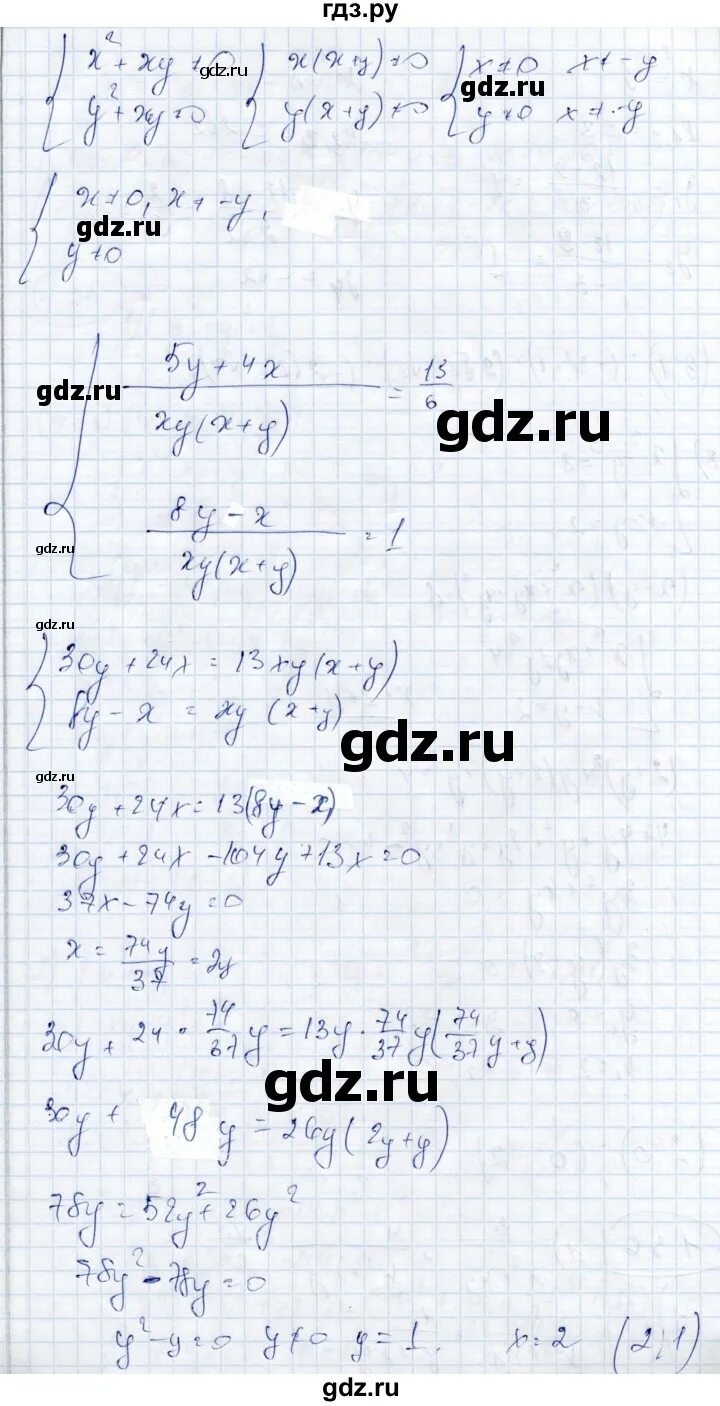 гдз.ру
x² + xy ≠ 0   x(x+y) ≠ 0   x ≠ 0   x ≠ -y
gdz.ru   gdz.ru
y² + xy ≠ 0   y(x+y) ≠ 0   y ≠ 0   x ≠ -y
x ≠ 0, x ≠ -y,
gdz.ru
y ≠ 0
(5y + 4x)/(xy(x+y)) = 13/6
gdz.ru   gdz.ru
(8y - x)/(xy(x+y)) = 1
gdz.ru
gdz.ru
30y + 24x = 13xy(x+y)
8y - x = xy (x+y)
gdz.ru
gdz.ru
30y + 24x = 13(8y - x)
30y + 24x - 104y + 13x = 0
37x - 74y = 0
x = 74y/37 = 2y
30y + 24 · 74/37 y = 13y · 74/37 y(74/37 y + y)
gdz.ru
30y + 48y = 26y(2y+y)
78y = 52y² + 26y²
78y² - 78y = 0
y² - y = 0   y ≠ 0   y = 1.   x = 2   (2;1)
gdz.ru